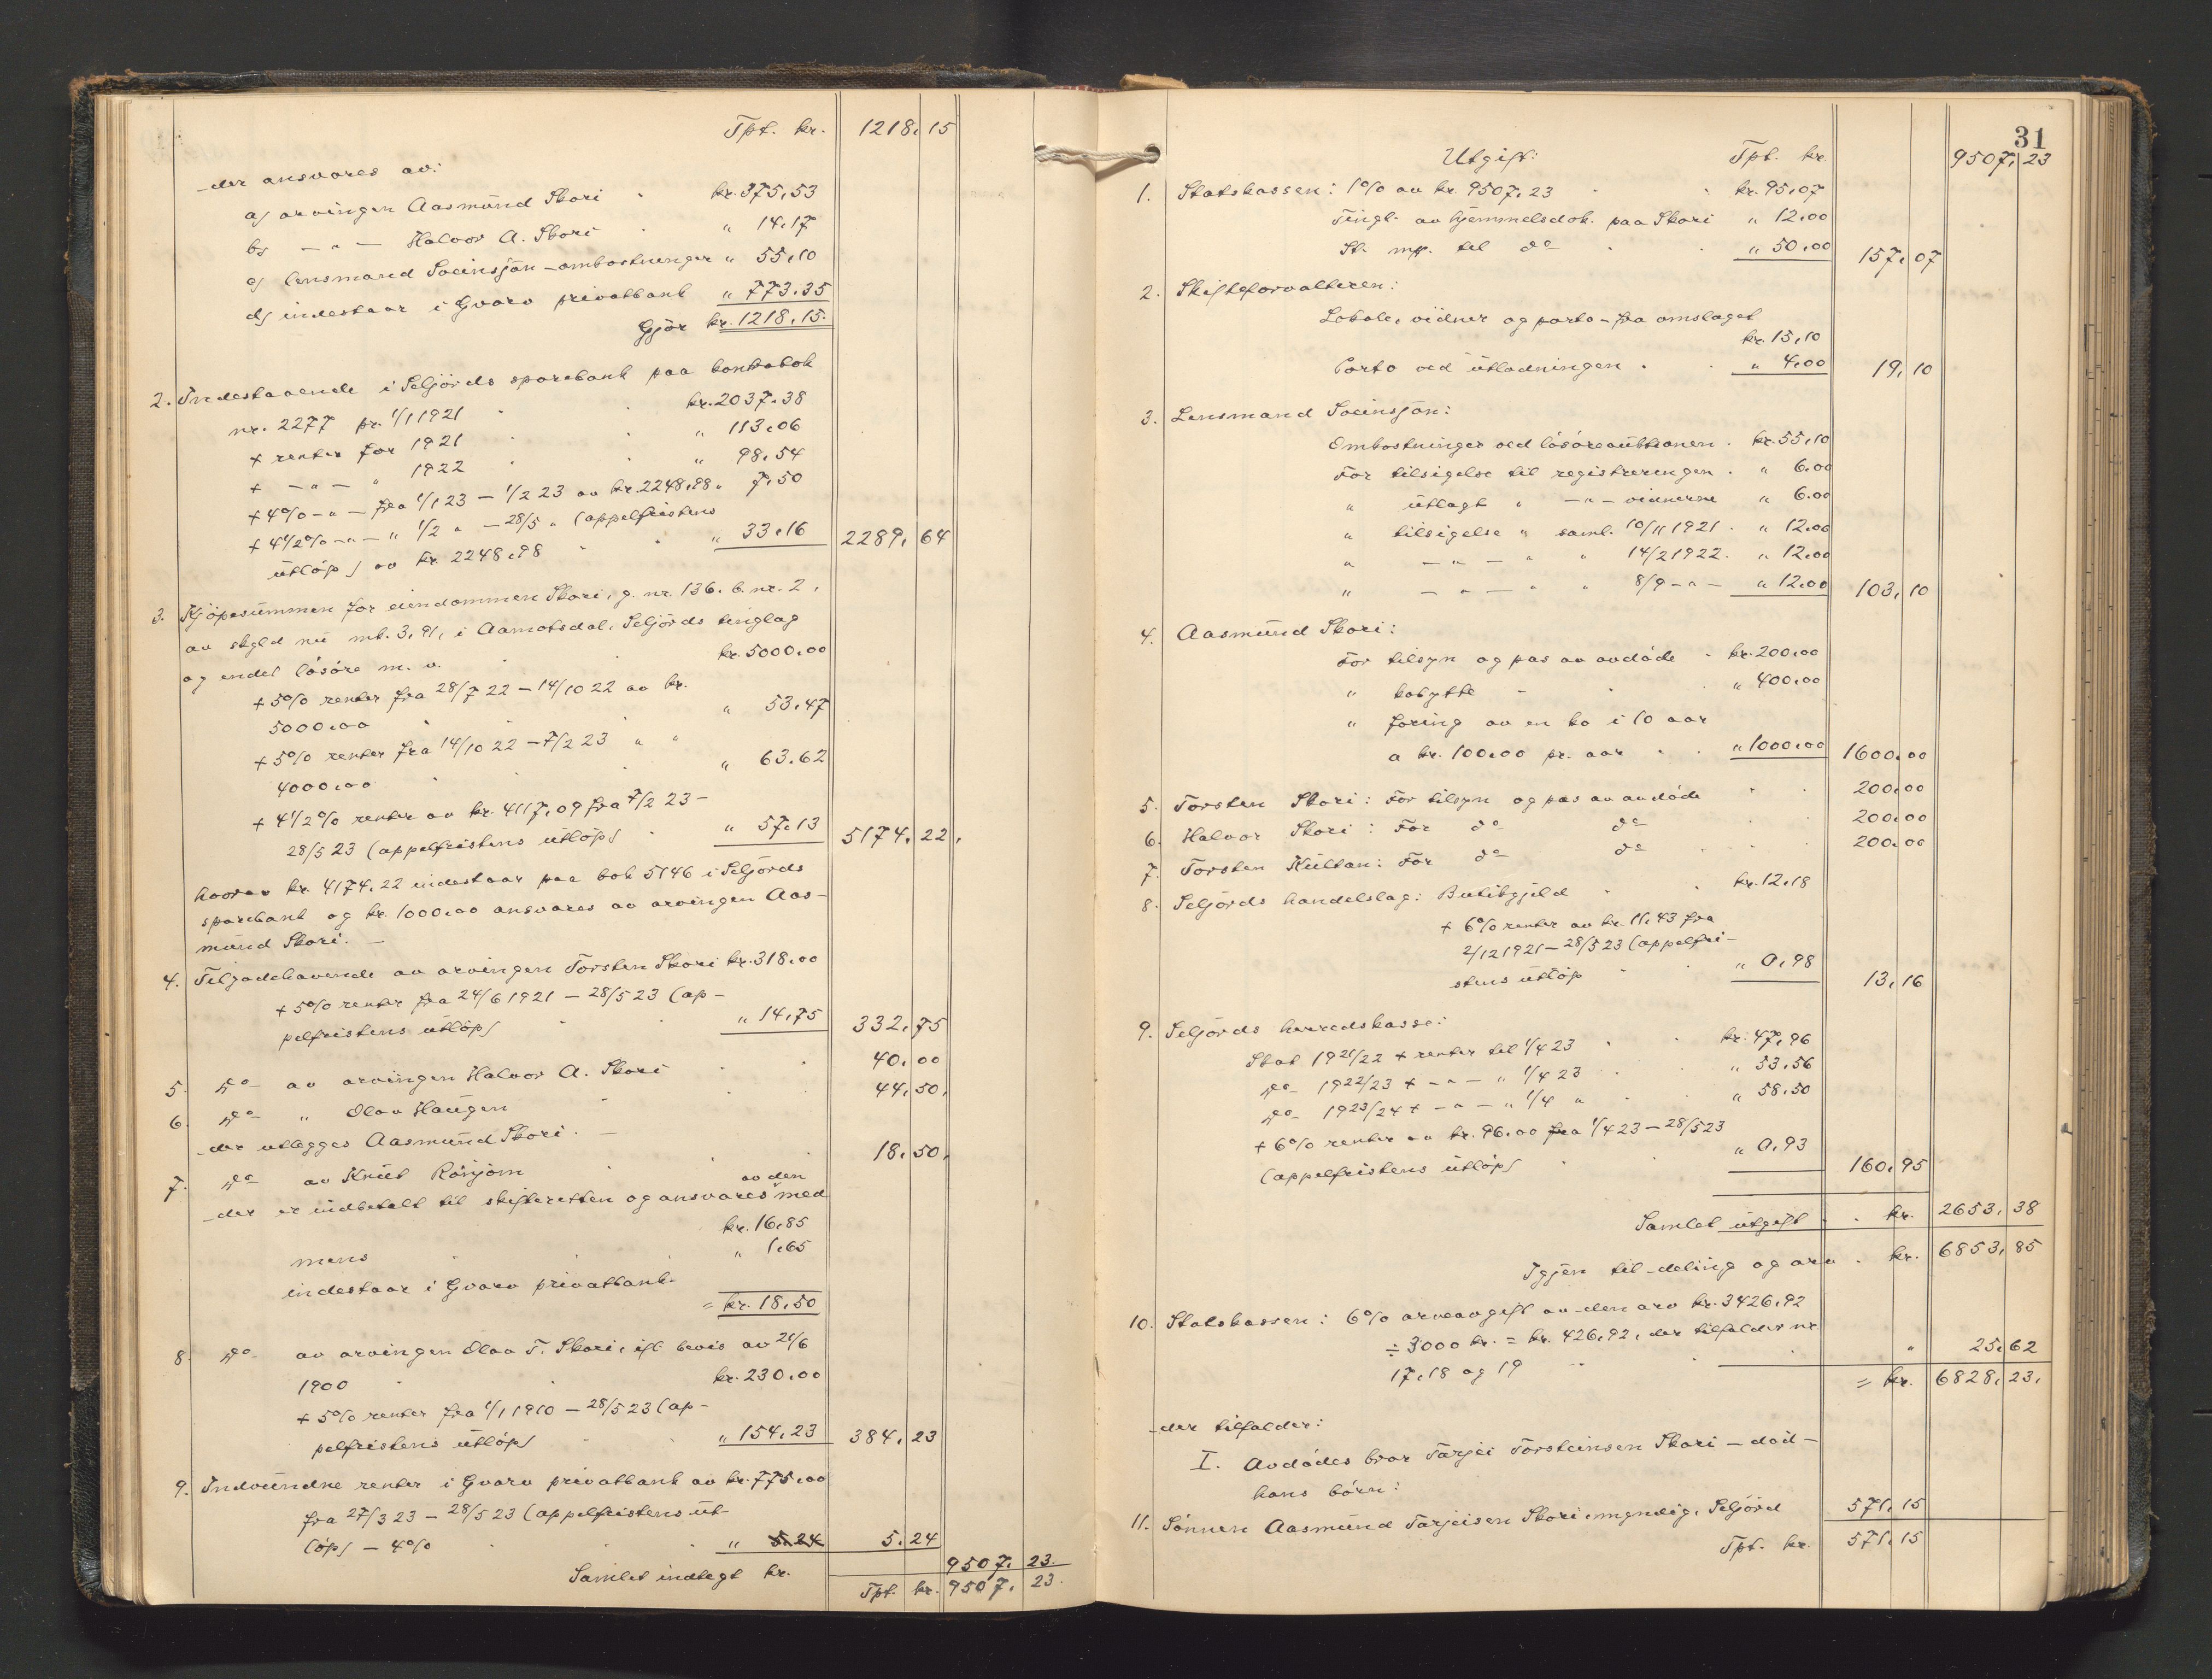 Tpt. kr. 1218,15
der ansvares av:
a) arvingen Aasmund Skori kr. 375,53
b) — " — Halvor A. Skori " 14,17
c) lensmand Sveinsjøn - omkostninger " 55,10
d) indestaar i Gvarv privatbank " 773,35
Gjør kr. 1218,15.
2. Indestaaende i Seljords sparebank paa kontrabok
nr. 2277 pr. 1/1 1921 kr. 2037,38
+ renter for 1921 " 113,06
+ — " — " 1922 " 98,54
+ 4% — " — fra 1/1 23 — 1/2 23 av kr. 2248,98 " 7,50
+ 4 1/2% — " — " 1/2 " — 28/5 " (appelfristens
utløp) av kr. 2248,98 " 33,16 2289,64
3. Kjøpesummen for eiendommen Skori, g. nr. 136. b. nr. 2,
av skyld nu mk. 3,91, i Aamotsdal, Seljords tinglag
og endel løsøre m. v. kr. 5000,00
+ 5% renter fra 28/7 22 — 14/10 22 av kr.
5000,00 " 53,47
+ 5% renter fra 14/10 22 — 7/2 23 " "
4000,00 " 63,62
+ 4 1/2% renter av kr. 4117,09 fra 7/2 23 —
28/5 23 (appelfristens utløp) " 57,13 5174,22,
hvorav kr. 4174,22 indestaar paa bok 5146 i Seljords
sparebank og kr. 1000,00 ansvares av arvingen Aas-
mund Skori. —
4. Tilgodehavende av arvingen Torsten Skori kr. 318,00
+ 5% renter fra 24/6 1921 — 28/5 23 (ap-
pelfristens utløp) " 14,75 332,75
5. Do av arvingen Halvor A. Skori 40,00
6. Do " Olav Haugen 44,50,
der utlegges Aasmund Skori. —
7. Do av Knut Rønjom 18,50,
der er indbetalt til skifteretten og ansvares av den med
kr. 16,85
mens " 1,65
indestaar i Gvarv privatbank.
= kr. 18,50
8. Do av arvingen Olav T. Skori, ifl. bevis av 21/6
1900 kr. 230,00
+ 5% renter fra 1/1 1910 — 28/5 23 (ap-
pelfristens utløp) " 154,23 384,23
9. Indvundne renter i Gvarv privatbank av kr. 775,00
fra 27/3 23 — 28/5 23 (appelfristens ut-
løp) — 4% " 5.24 5,24
Samlet indtegt kr. 9507,23.
Tpt. kr. 9507,23.
31
Utgift: Tpt. kr. 9507,23
1. Statskassen: 1% av kr. 9507,23 kr. 95,07
Tingl. av hjemmelsdok. paa Skori " 12,00
St. mp. til do " 50,00 157,07
2. Skifteforvalteren:
Lokale, vidner og porto - fra omslaget
kr. 15,10
Porto ved utlodningen " 4,00 19,10
3. Lensmand Sveinsjøn:
Omkostninger ved løsøreauktionen kr. 55,10
For tilsigelse til registreringen " 6,00
" utlagt " — " — vidnerne " 6,00
" tilsigelse " saml. 10/11 1921 " 12,00
" — " — " " 14/2 1922 " 12,00
" — " — " " 8/9 — " — " 12,00 103,10
4. Aasmund Skori:
For tilsyn og pas av avdøde kr. 200,00
" kobytte " 400,00
" foring av en ko i 10 aar
a kr. 100,00 pr. aar " 1000,00 1600,00
5. Torsten Skori: For tilsyn og pas av avdøde 200,00
6. Halvor Skori: For do do 200,00
7. Torsten Kultan: For do do 200,00
8. Seljords handelslag: Butikgjeld kr. 12,18
+ 6% renter av kr. 11,43 fra
2/12 1921 — 28/5 23 (appelfri-
stens utløp " 0,98 13,16
9. Seljords herredskasse:
Skat 1921/22 + renter til 1/4 23 kr. 47,96
Do 1922/23 + — " — " 1/4 23 " 53,56
Do 1923/24 + — " — " 1/4 " " 58,50
+ 6% renter av kr. 96,00 fra 1/4 23 — 28/5 23
(appelfristens utløp) " 0,93 160,95
Samlet utgift kr. 2653,38
Igjen til deling og arv kr. 6853,85
10. Statskassen: 6% arveavgift av den arv kr. 3426,92
÷ 3000 kr. = kr. 426,92, der tilfalder nr.
17, 18 og 19 " 25,62
= kr. 6828,23.
der tilfalder:
I. Avdødes bror Tarjei Torsteinsen Skori — død —
hans børn:
11. Sønnen Aasmund Tarjeisen Skori, myndig, Seljord 571,15
Tpt. kr. 571,15